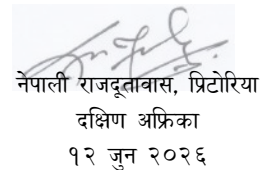 नेपाली राजदूतावास, प्रिटोरिया
दक्षिण अफ्रिका
१२ जुन २०२६